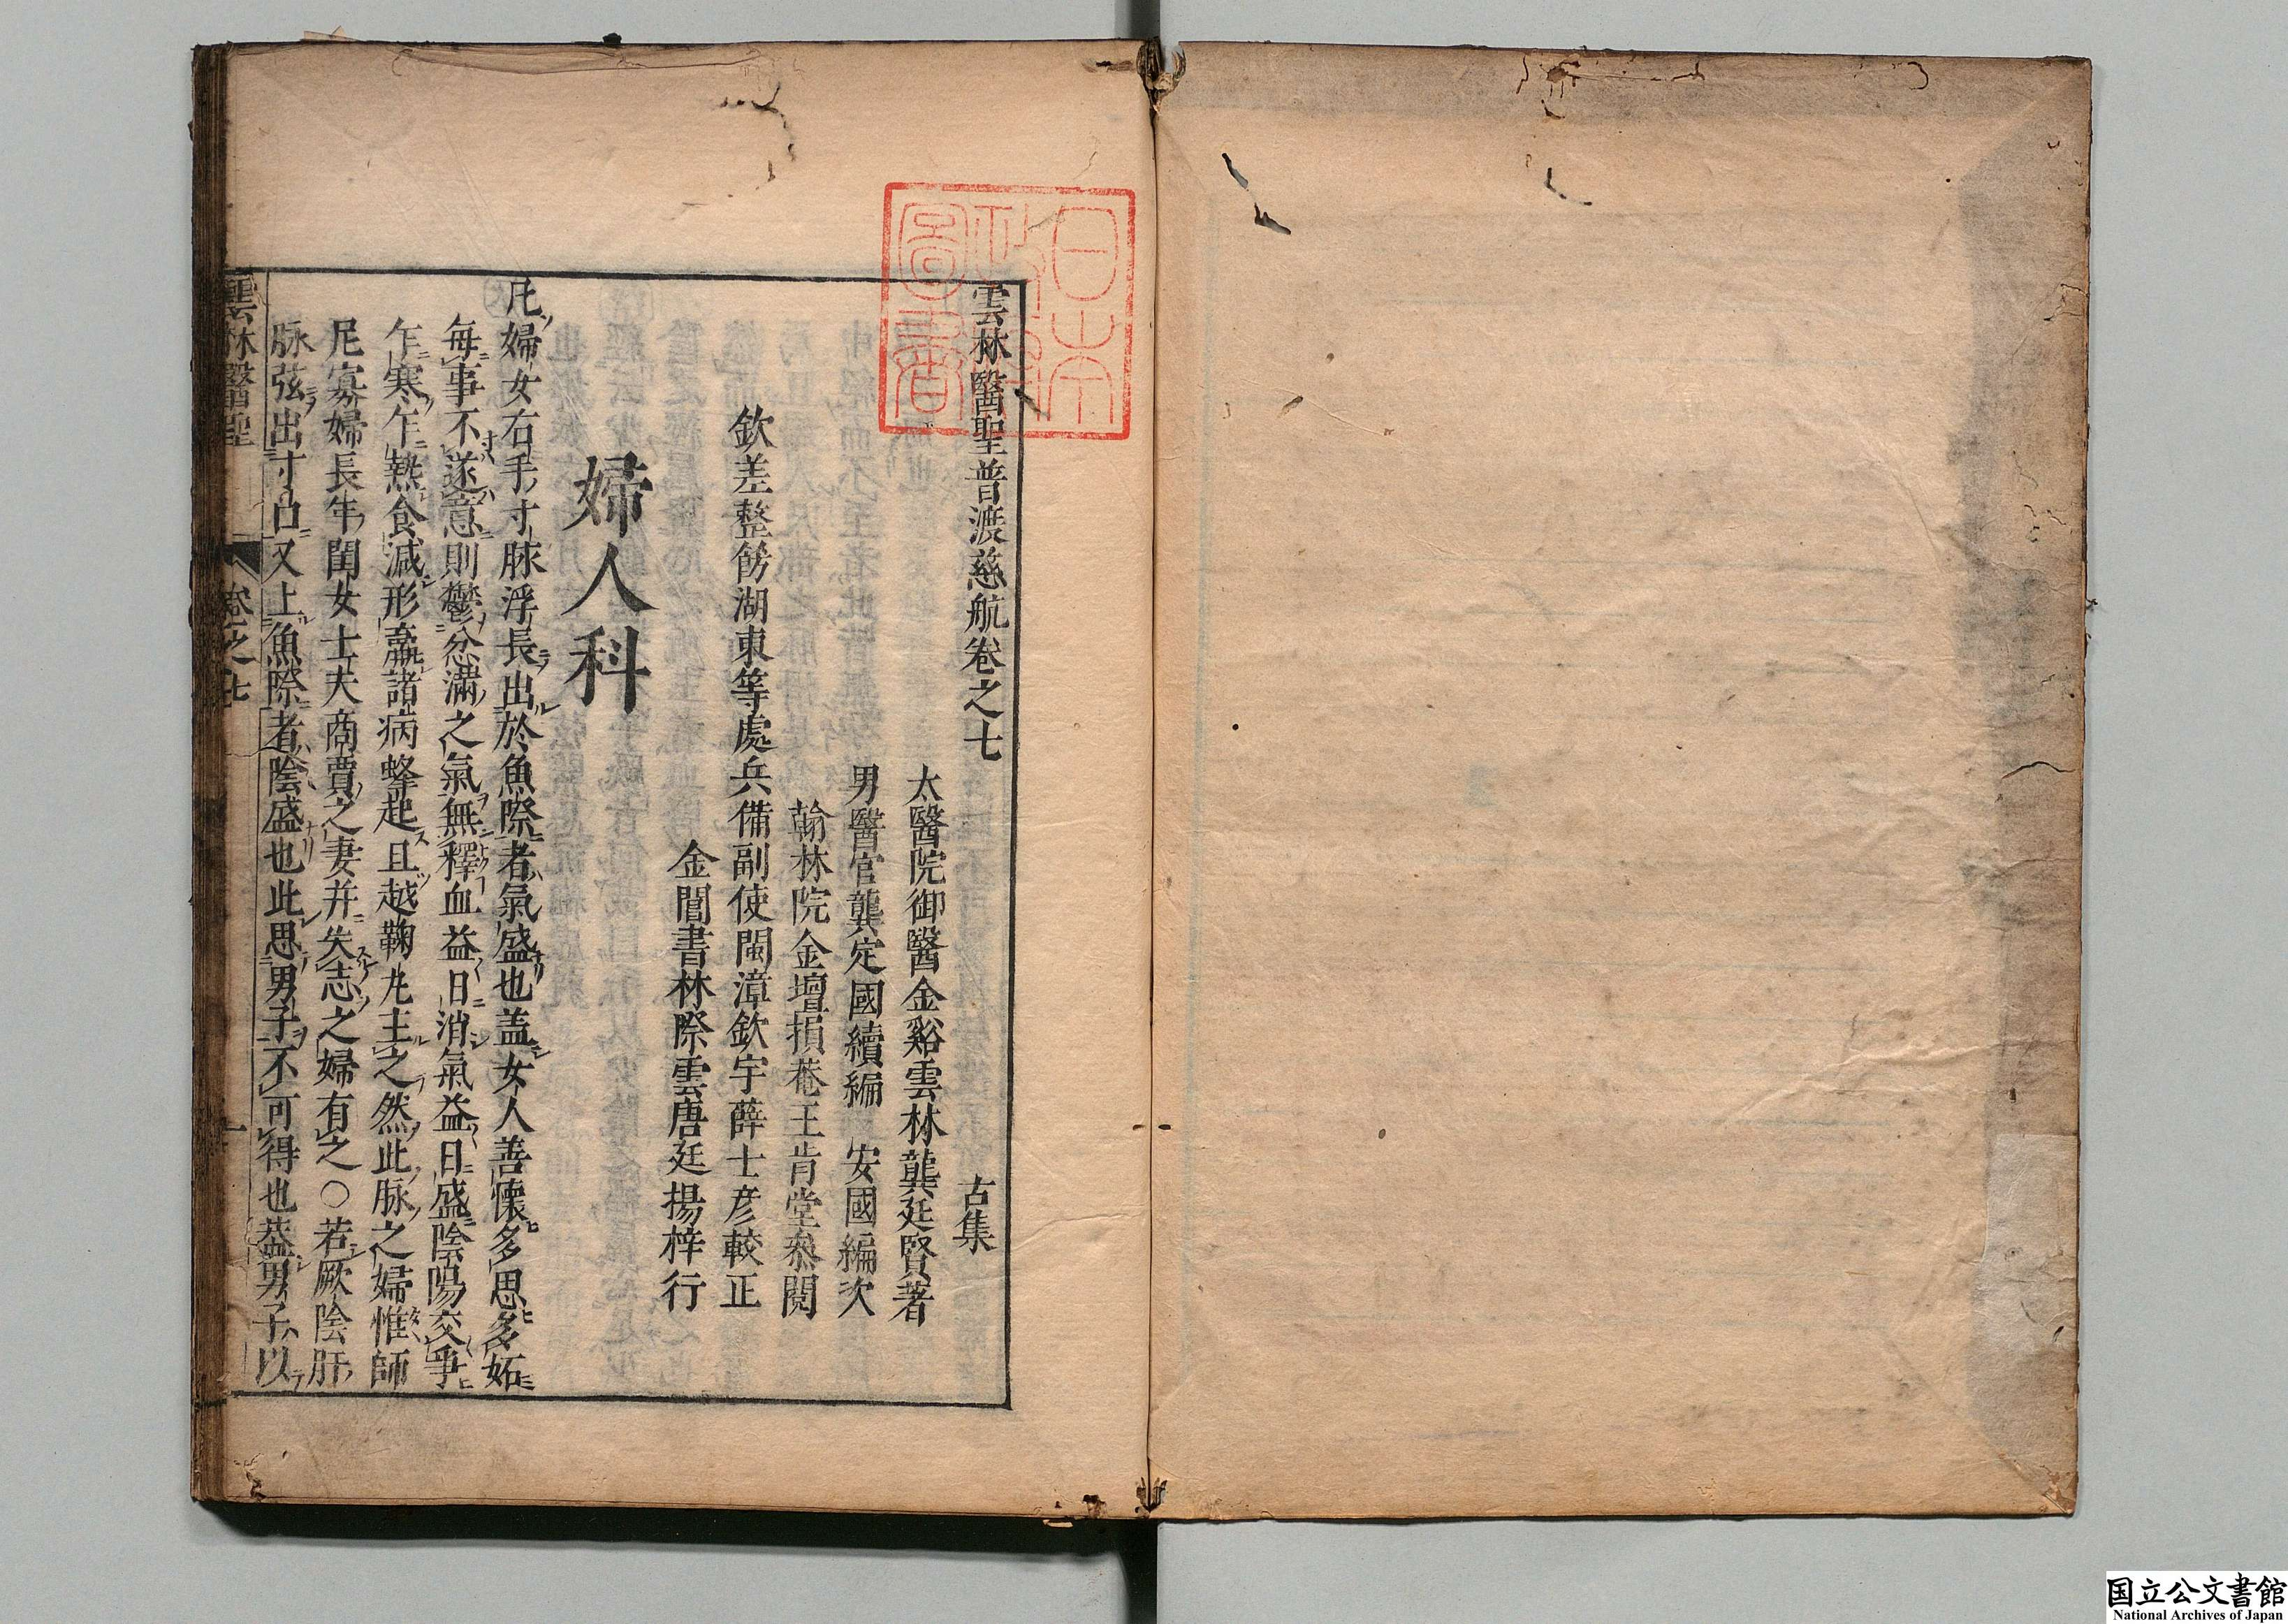 雲林醫聖普渡慈航卷之七
古集
太醫院御醫金谿雲林龔廷賢著
男醫官龔定國續編　安國編次
翰林院金壇損菴王肯堂叅閱
欽差整飭湖東等處兵備副使閩漳欽宇薛士彦較正
金閶書林際雲唐廷揚梓行
婦人科
凡婦女右手寸脉浮長出於魚際者氣盛也盖女人善懷多思多妬
每事不遂意則鬱忿滿之氣無釋血益日消氣益日盛陰陽交爭
乍寒乍熱食減形羸諸病蜂起且越鞠丸主之然此脉之婦惟師
尼寡婦長年閨女士夫商賈之妻并失志之婦有之○若厥陰肝
脉弦出寸凸又上魚際者陰盛也此思男子不可得也葢男子以
雲林醫聖　卷之七　一
日本政府圖書
国立公文書館
National Archives of Japan